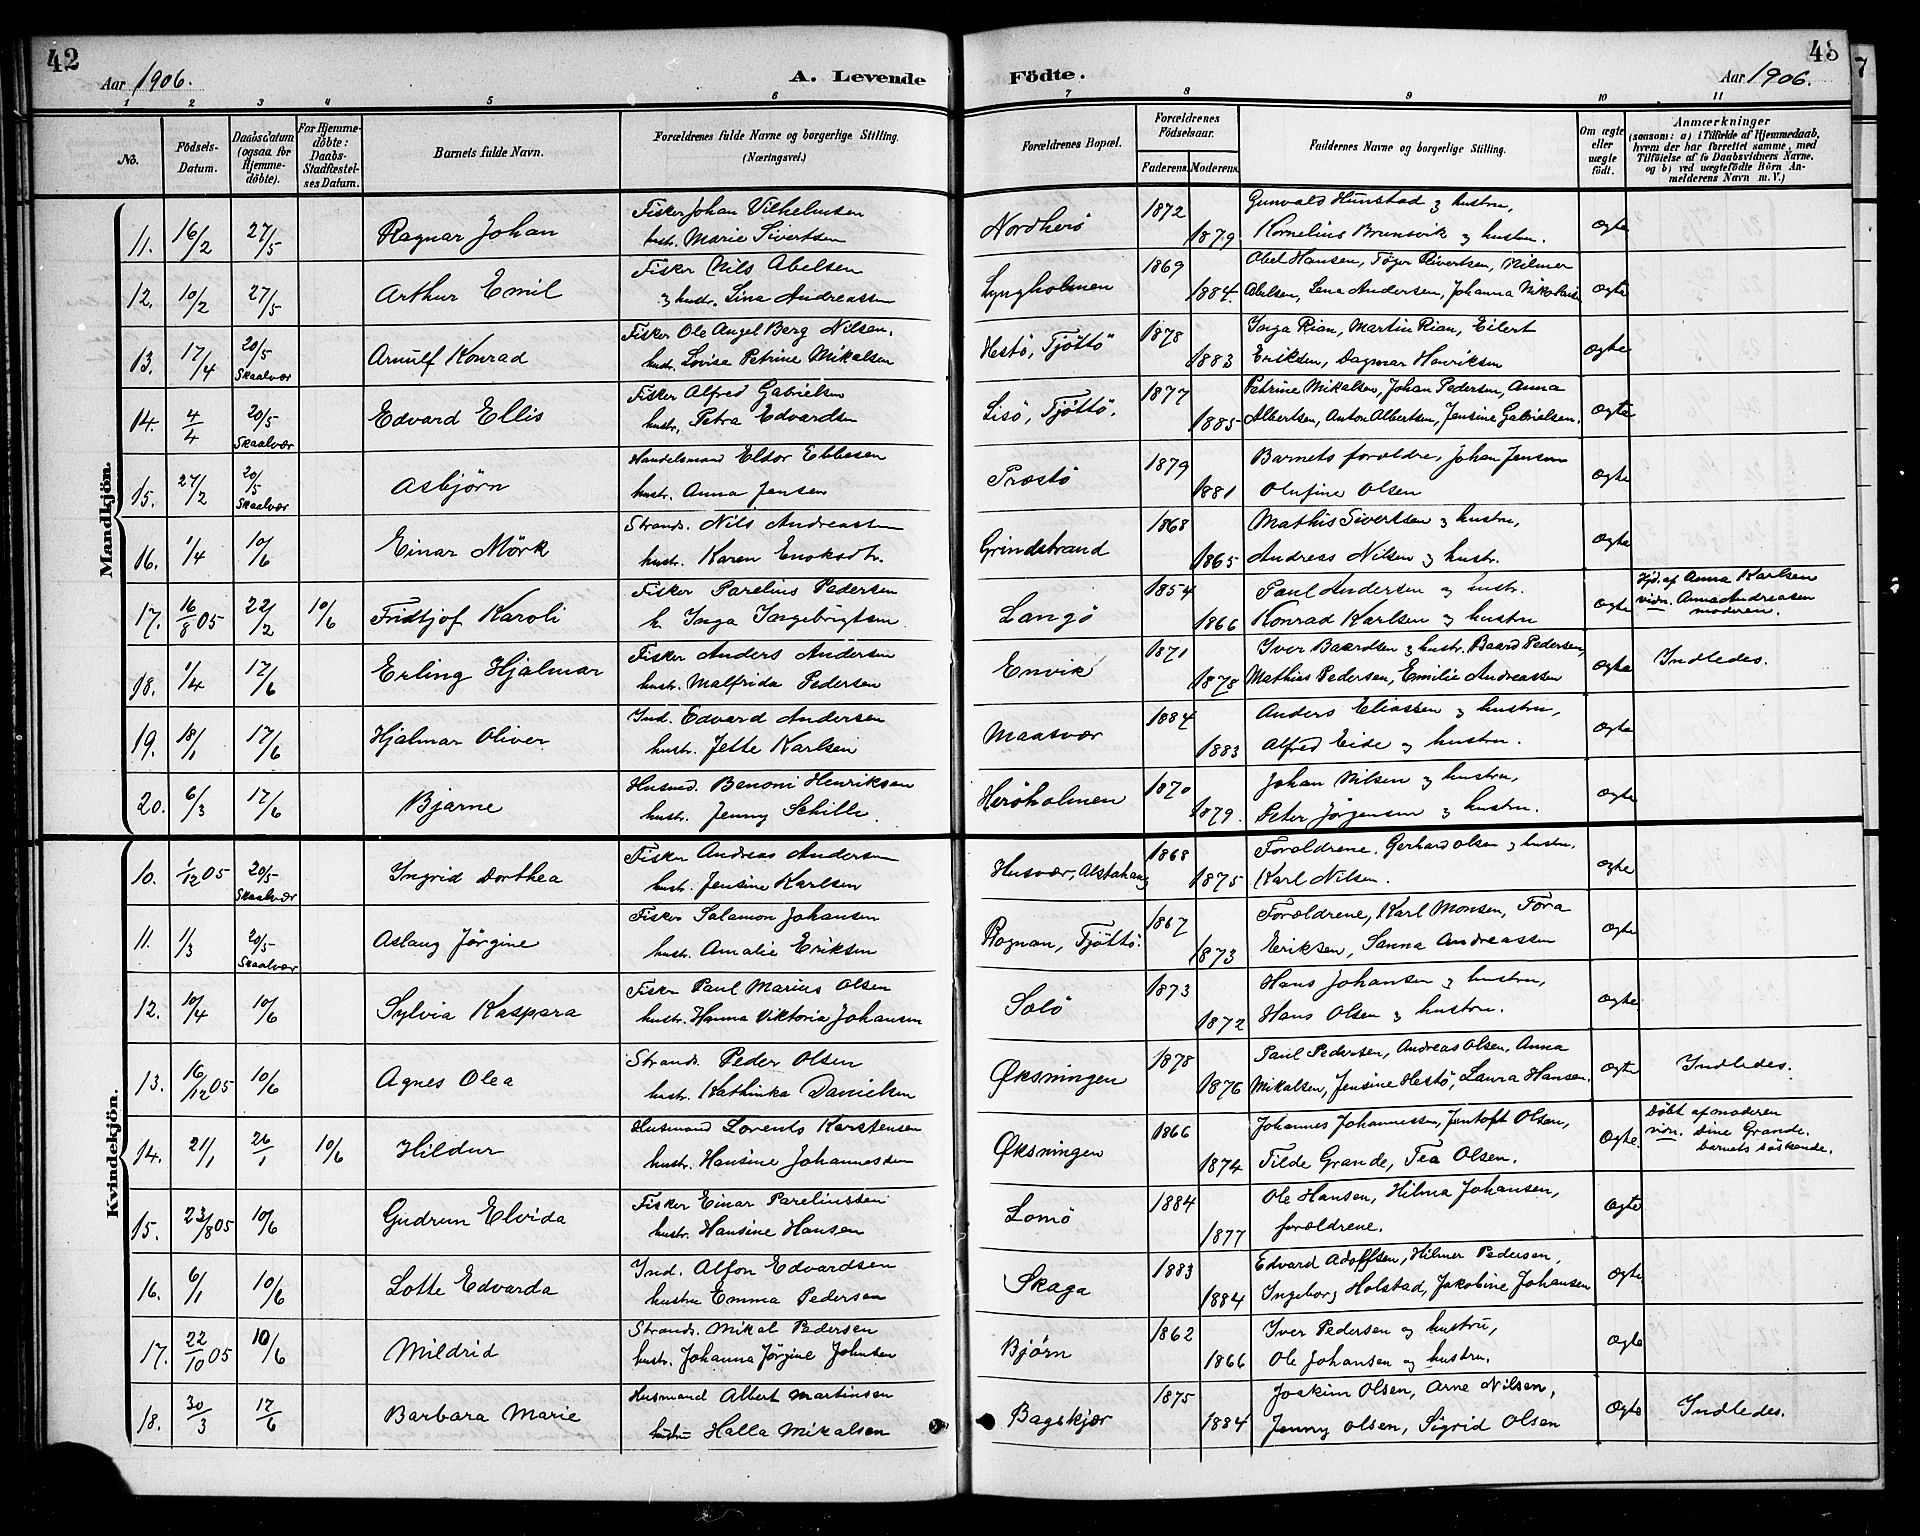 42
Aar 1906.
A. Levende
Födte.
Aar 1906.
43
1 2 3 4 5 6 7 8 9 10 11
No.
Födsels-Datum.
Daabsdatum (ogsaa for Hjemme-döbte).
For Hjemme-döbte: Daabs-Stadfæstel-ses Datum.
Barnets fulde Navn.
Forældrenes fulde Navne og borgerlige Stilling. (Næringsvei.)
Forældrenes Bopæl.
Forældrenes Födselsaar.
Faderens. Moderens.
Faddernes Navne og borgerlige Stilling.
Om ægte eller uægte født.
Anmærkninger (saasom: a) i Tilfælde af Hjemmedaab, hvem der har forrettet samme, med Tilföielse af to Daabsvidners Navne. og b) ved uægtefödte Börn An-melderens Navn m. V.)
Mandkjön.
11. 16/2 27/5 Ragnar Johan Fisker Johan Vilhelmsen Nordherö 1872 Gunvald Hunstad & hustru, Ægte
hustr. Marie Sivertsen 1879. Kornelius Brunsvik & hustru.
12. 10/2 27/5 Arthur Emil Fisker Nils Abelsen Lyngholmen 1869 Abel Hansen, Töger Sivertsen, Hilmer Ægte
& hustr. Lina Andreassen 1884. Abelsen, Lena Andersen, Johanna Nikolaisen
13. 17/4 20/5 Skaalvær Arnulf Konrad Fisker Ole Angel Berg Nilsen. Hestö, Tjöttö 1878 Inga Rian, Martin Rian, Eilert Ægte
hustr. Lovise Petrine Mikalsen 1883 Eriksen, Dagmar Henriksen
14. 4/4 20/5 Skaalvær Edvard Ellis Fisker Alfred Gabrielsen Lisö, Tjöttö. 1877 Petrine Mikalsen, Johan Pedersen, Anna Ægte
hustr. Petra Edvardsen 1885 Albertsen, Anton Albertsen, Jensine Gabrielsen.
15. 27/2 20/5 Skaalvær Asbjörn Handelsmand Eldor Ebbesen Prestö 1879 Barnets forældre, Johan Jensen Ægte
hustr. Anna Jensen 1881 Olufine Olsen
16. 1/4 10/6 Einar Mörk Strands. Nils Andreassen Grindstrand 1868 Mathis Sivertsen & hustru, Ægte
hustr. Karen Enoksdtr. 1865 Andreas Nilsen & hustr.
17. 16/8 05 22/2 10/6 Fridtjof Karoli Fisker Parelius Pedersen Langö 1854 Paul Andersen & hustr. Ægte Hjd. af Anna Karlsen
h. Inga Ingebrigtsen 1866 Konrad Karlsen & hustru vidn. Anna Andreasen
moderen.
18. 1/4 17/6 Erling Hjalmar Fisker Anders Andersen Envik 1871 Iver Baardsen & hustr. Baard Pedersen, Ægte Indledes.
hustr. Malfrida Pedersen 1878 Mathias Pedersen, Emilie Andreassen
19. 18/1 17/6 Hjalmar Oliver Ind. Edvard Andersen Maasvær 1884 Anders Eliassen & hustru, Ægte
hustr. Jette Karlsen 1883 Alfred Eide og hustru.
20. 6/3 17/6 Bjarne Husmd. Benoni Henriksen Heröholmen 1870 Johan Nilsen & hustru, Ægte
hustr. Jenny Schille. 1879. Peter Jörgensen & hustru.
Kvindekjön.
10. 1/12 05 20/5 Skaalvær Ingrid Dorthea Fisker Andreas Andersen Husvær, Alstahaug 1868 Forældrene. Gerhard Olsen & hustru. Ægte
hustr. Jensine Karlsen 1875 Karl Nilsen.
11. 1/3 20/5 Skaalvær Aslaug Jörgine Fisker Salamon Johansen Rognan, Tjöttö. 1867 Forældrene, Karl Monsen, Tora Ægte
hustr. Amalie Eriksen 1873 Eriksen, Sanna Andreassen
12. 10/4 10/6 Sylvia Kaspara Fisker Paul Marius Olsen Solö 1873 Hans Johansen & hustru, Ægte
hustr. Hanna Viktoria Johansen 1872 Hans Olsen & hustru.
13. 16/12 05 10/6 Agnes Olea Strands. Peder Olsen Øksningen 1878 Paul Pedersen, Andreas Olsen, Anna Ægte Indledes.
hustr. Kathinka Danielsen 1876 Mikalsen, Jensine Hestö, Laura Hansen.
14. 21/1 26/1 10/6 Hildur Husmand Lorents Karstensen Øksningen 1866 Johannes Johannessen, Jentoft Olsen, Ægte Döbt af moderen
hustr. Hansine Johannesen 1874 Tilde Grande, Tea Olsen. vidn. Sine Grande.
barnets söskende.
15. 23/8 05 10/6 Gudrun Elvida Fisker Einar Pareliussen Lomö 1884 Ole Hansen, Hilma Johansen, Ægte
hustr. Hansine Hansen 1877 forældrene.
16. 6/1 10/6 Lotte Edvarda Ind. Alfon Edvardsen Skaga 1883 Edvard Adolfsen, Hilmer Pedersen, Ægte
hustru Emma Pedersen 1884 Ingeborg Holstad, Jakobine Johansen
17. 22/10 05 10/6 Mildrid Strands. Mikal Pedersen Bjørn 1862 Iver Pedersen og hustru, Ægte
hustr. Johanna Jörgine Johnsen 1866 Ole Johansen og hustru.
18. 30/3 17/6 Barbara Marie Husmand Albert Martinsen Bagskjær 1875 Joakim Olsen, Arne Nilsen, Ægte Indledes.
hustru Halla Mikalsen 1884 Jenny Olsen, Sigrid Olsen